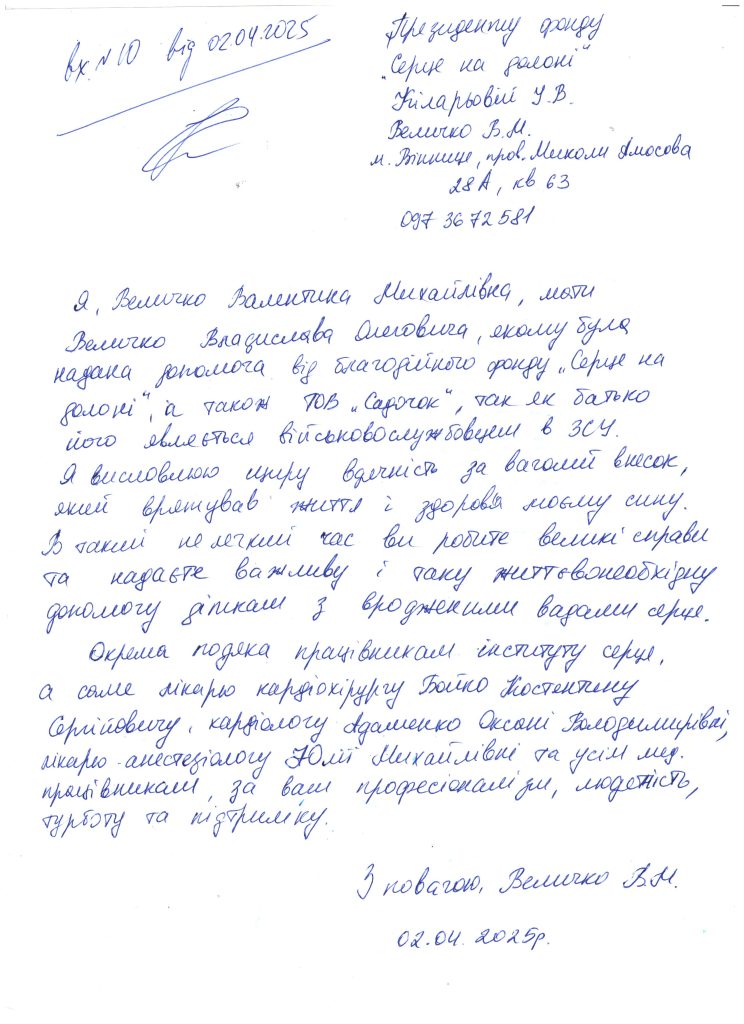 вх. №10 від 02.04.2025
Президенту фонду
„Серце на долоні"
Кіларьовій У.В.
Величко В.М.
м. Вінниця, пров. Миколи Амосова
28А, кв 63
097 36 72 581
Я, Величко Валентина Михайлівна, мати
Величко Владислава Олеговича, якому була
надана допомога від благодійного фонду „Серце на
долоні", а також ТОВ „Садочок", так як батько
його являється військовослужбовцем в ЗСУ.
Я висловлюю щиру вдячність за вагомий внесок,
який врятував життя і здоров'я моєму сину.
В такий нелегкий час ви робите великі справи
та надаєте важливу і таку життєвонеобхідну
допомогу діткам з вродженими вадами серця.
Окрема подяка працівникам інституту серця,
а саме лікарю кардіохірургу Бойко Костянтину
Сергійовичу, кардіологу Адаменко Оксані Володимирівні,
лікарю-анестезіологу Юлії Михайлівні та усім мед.
працівникам, за ваш професіоналізм, людяність,
турботу та підтримку.
З повагою, Величко В.М.
02.04.2025р.